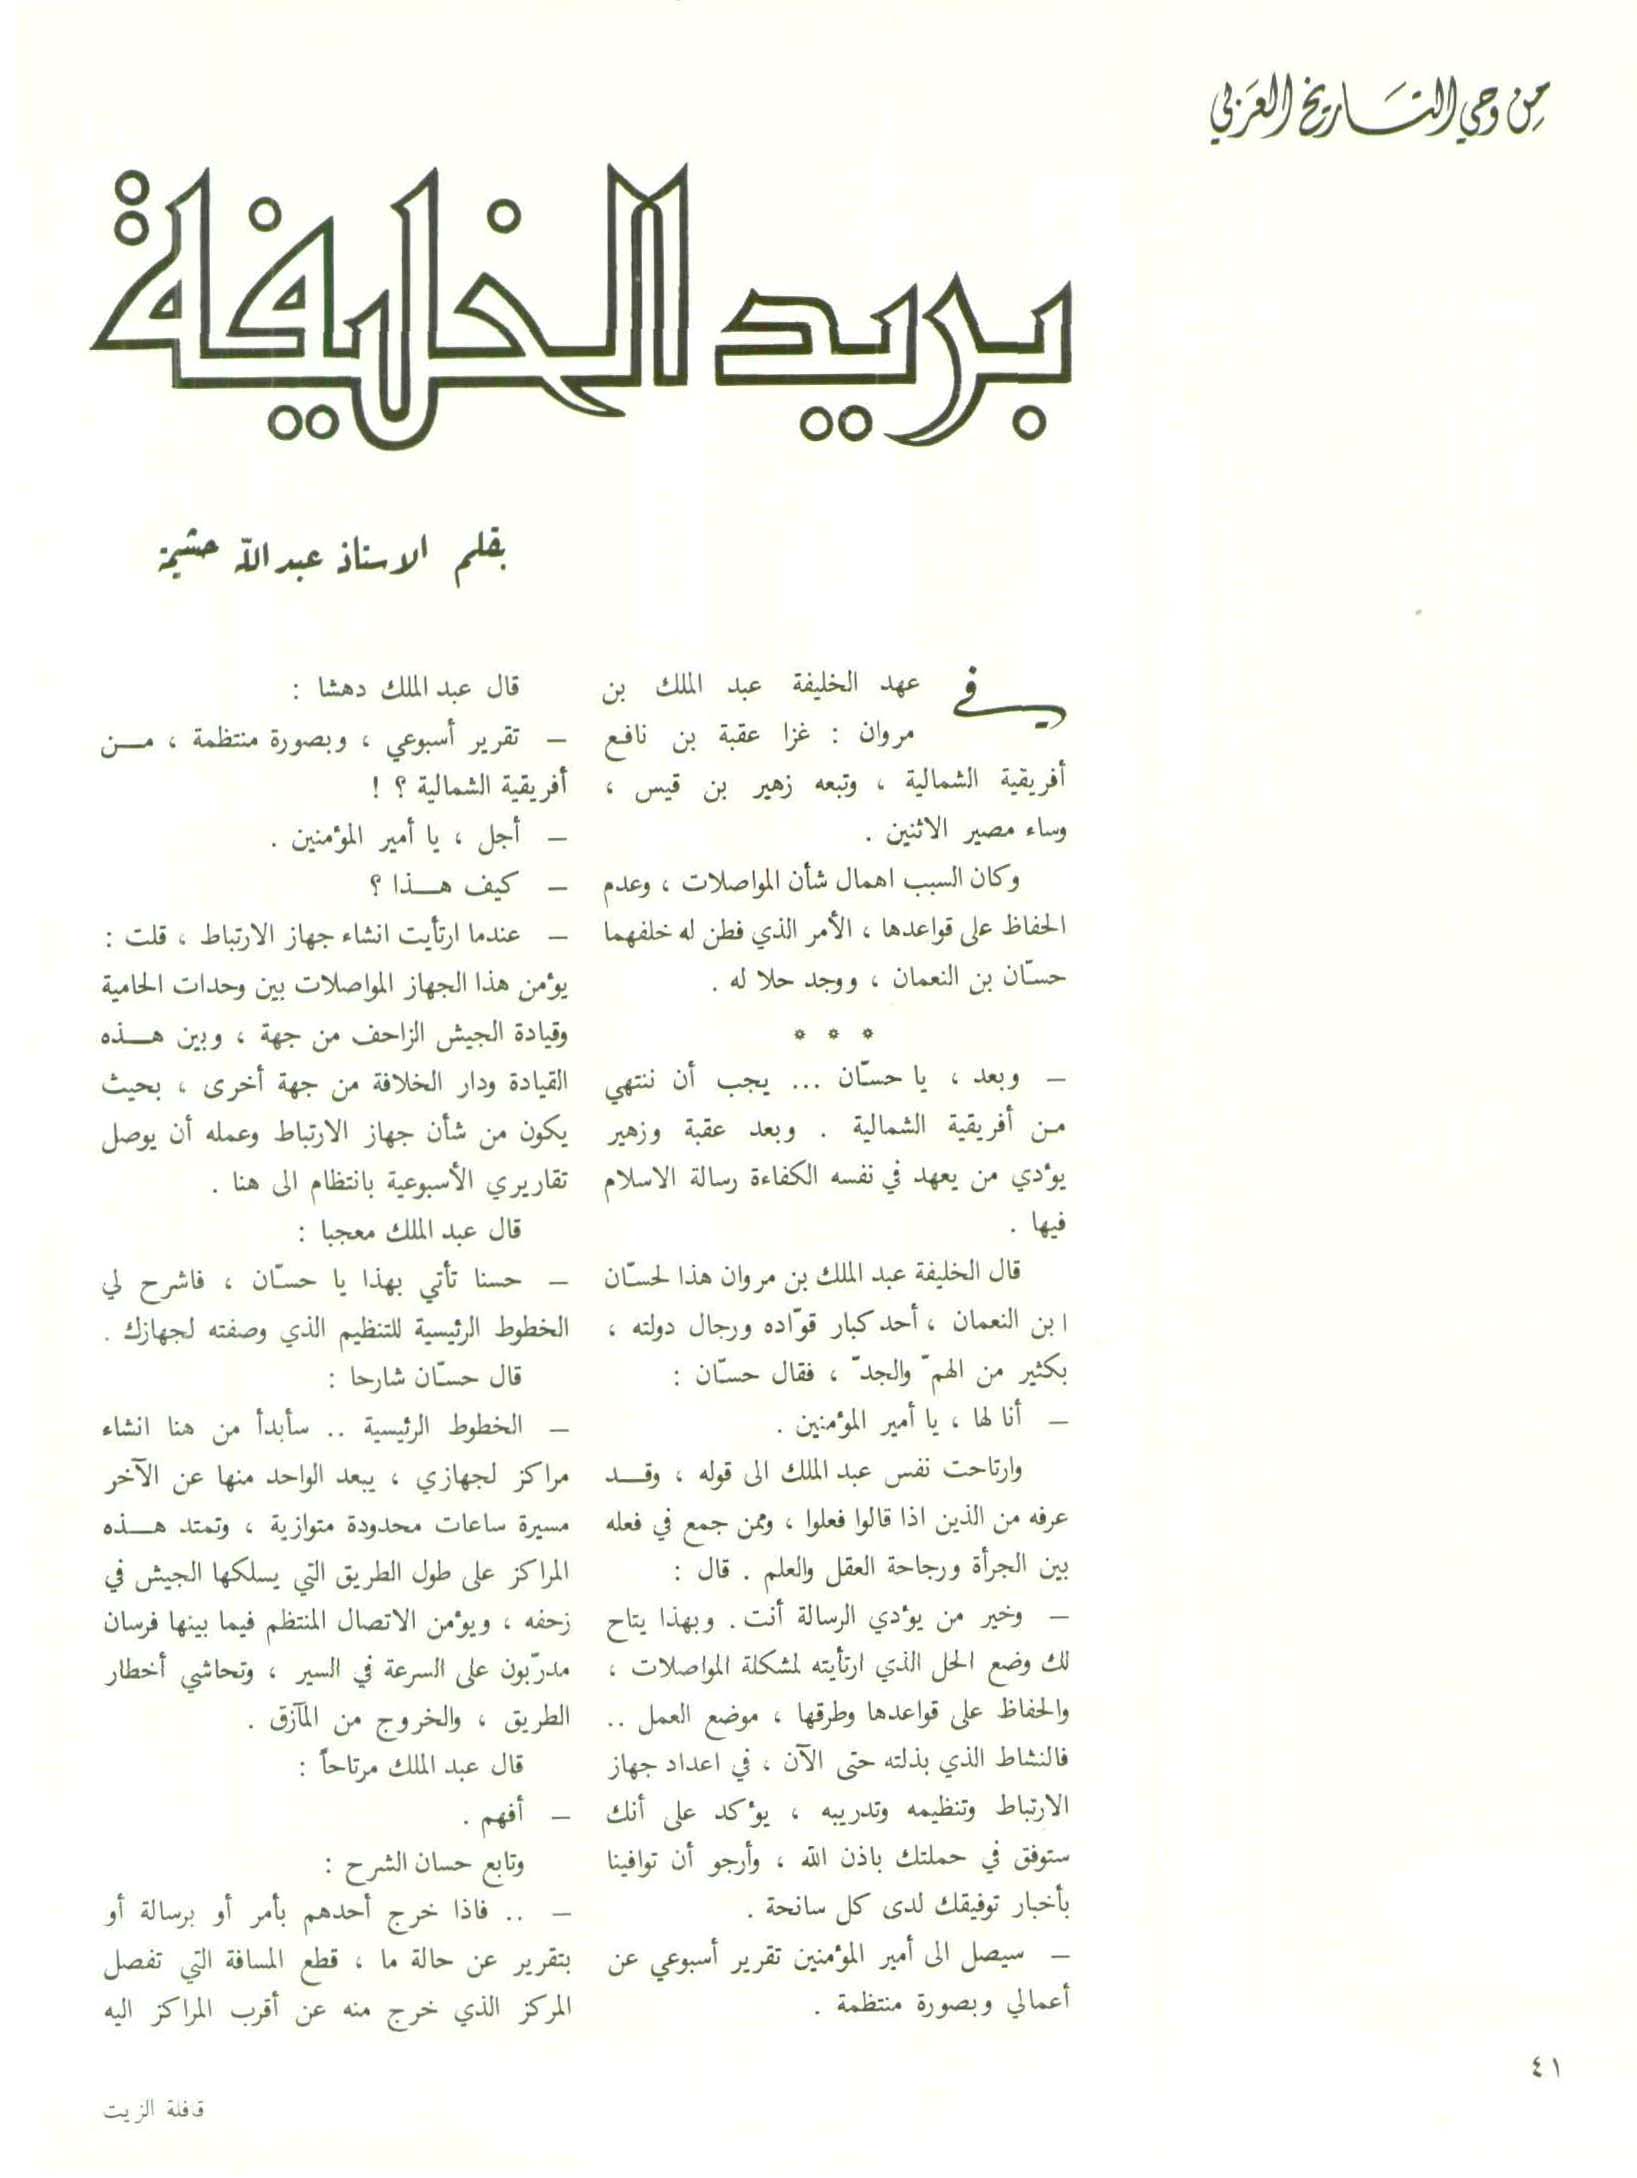 من وحي التاريخ العربي
بريد الخليفة
بقلم الاستاذ عبد الله حشيمة
في عهد الخليفة عبد الملك بن
مروان : غزا عقبة بن نافع
أفريقية الشمالية ، وتبعه زهير بن قيس ،
وساء مصير الاثنين .
وكان السبب اهمال شأن المواصلات ، وعدم
الحفاظ على قواعدها ، الأمر الذي فطن له خلفهما
حسّان بن النعمان ، ووجد حلا له .
* * *
– وبعد ، يا حسّان ... يجب أن ننتهي
من أفريقية الشمالية . وبعد عقبة وزهير
يؤدي من يعهد في نفسه الكفاءة رسالة الاسلام
فيها .
قال الخليفة عبد الملك بن مروان هذا لحسّان
ابن النعمان ، أحد كبار قوّاده ورجال دولته ،
بكثير من الهمّ والجدّ ، فقال حسّان :
– أنا لها ، يا أمير المؤمنين .
وارتاحت نفس عبد الملك الى قوله ، وقد
عرفه من الذين اذا قالوا فعلوا ، وممن جمع في فعله
بين الجرأة ورجاحة العقل والعلم . قال :
– وخير من يؤدي الرسالة أنت . وبهذا يتاح
لك وضع الحل الذي ارتأيته لمشكلة المواصلات ،
والحفاظ على قواعدها وطرقها ، موضع العمل ..
فالنشاط الذي بذلته حتى الآن ، في اعداد جهاز
الارتباط وتنظيمه وتدريبه ، يؤكد على أنك
ستوفق في حملتك باذن الله ، وأرجو أن توافينا
بأخبار توفيقك لدى كل سانحة .
– سيصل الى أمير المؤمنين تقرير أسبوعي عن
أعمالي وبصورة منتظمة .
قال عبد الملك دهشا :
– تقرير أسبوعي ، وبصورة منتظمة ، من
أفريقية الشمالية ؟ !
– أجل ، يا أمير المؤمنين .
– كيف هذا ؟
– عندما ارتأيت انشاء جهاز الارتباط ، قلت :
يؤمن هذا الجهاز المواصلات بين وحدات الحامية
وقيادة الجيش الزاحف من جهة ، وبين هذه
القيادة ودار الخلافة من جهة أخرى ، بحيث
يكون من شأن جهاز الارتباط وعمله أن يوصل
تقاريري الأسبوعية بانتظام الى هنا .
قال عبد الملك معجبا :
– حسنا تأتي بهذا يا حسّان ، فاشرح لي
الخطوط الرئيسية للتنظيم الذي وصفته لجهازك .
قال حسّان شارحا :
– الخطوط الرئيسية .. سأبدأ من هنا انشاء
مراكز لجهازي ، يبعد الواحد منها عن الآخر
مسيرة ساعات محدودة متوازية ، وتمتد هذه
المراكز على طول الطريق التي يسلكها الجيش في
زحفه ، ويؤمن الاتصال المنتظم فيما بينها فرسان
مدرّبون على السرعة في السير ، وتحاشي أخطار
الطريق ، والخروج من المآزق .
قال عبد الملك مرتاحاً :
– أفهم .
وتابع حسان الشرح :
– .. فاذا خرج أحدهم بأمر أو برسالة أو
بتقرير عن حالة ما ، قطع المسافة التي تفصل
المركز الذي خرج منه عن أقرب المراكز اليه
٤١
قافلة الزيت